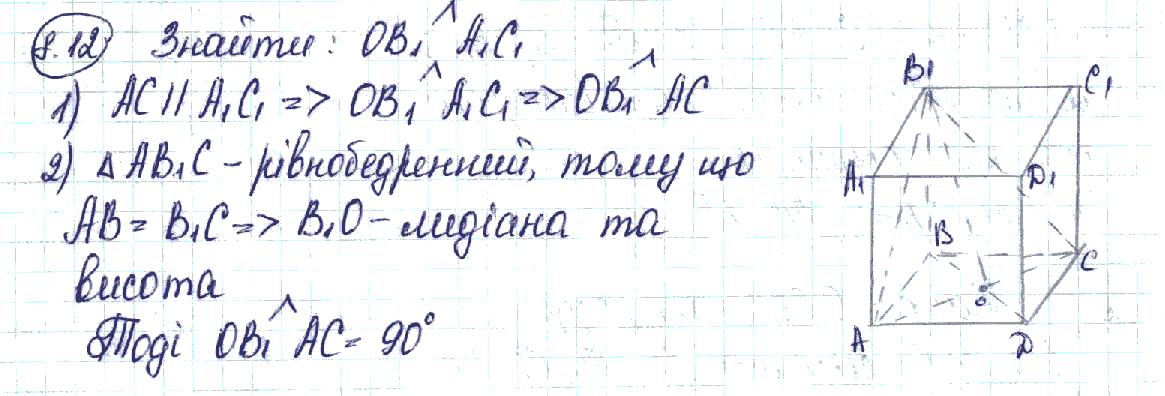 8.12 Знайти: OB₁^A₁C₁
1) AC || A₁C₁ => OB₁^A₁C₁ => OB₁^AC
2) △AB₁C – рівнобедренний, тому що
AB = B₁C => B₁O – медіана та
висота
Тоді OB₁^AC = 90°
B₁ C₁
A₁ D₁
B C
O
A D